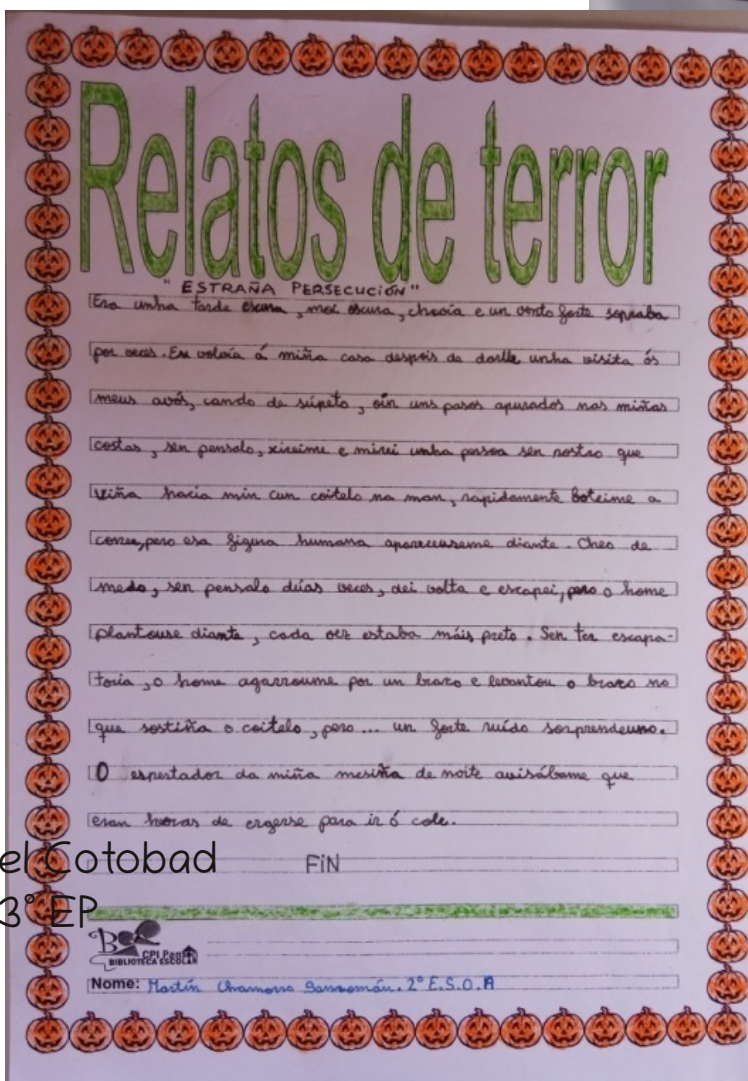 Relatos de terror
" ESTRAÑA PERSECUCIÓN "
Era unha tarde escura, moi escura, chovía e un vento forte sopraba
por veces. Eu volvía á miña casa despois de darlle unha visita ós
meus avós, cando de súpeto, oín uns pasos apurados nas miñas
costas, sen pensalo, xireime e mirei unha persoa sen rostro que
viña hacia min cun coitelo na man, rapidamente boteime a
correr, pero esa figura humana aparecíaseme diante. Cheo de
medo, sen pensalo dúas veces, dei volta e escapei, pero o home
plantouse diante, cada vez estaba máis preto. Sen ter escapa-
toria, o home agarroume por un brazo e levantou o brazo no
que sostiña o coitelo, pero ... un forte ruído sorprendeuno.
O espertador da miña mesiña de noite avisábame que
eran horas de ergerse para ir ó cole.
FiN
el Cotobad
3º EP
CPI Panxón
BIBLIOTECA ESCOLAR
Nome: Martín Chamorro Sanromán. 2º E.S.O. A